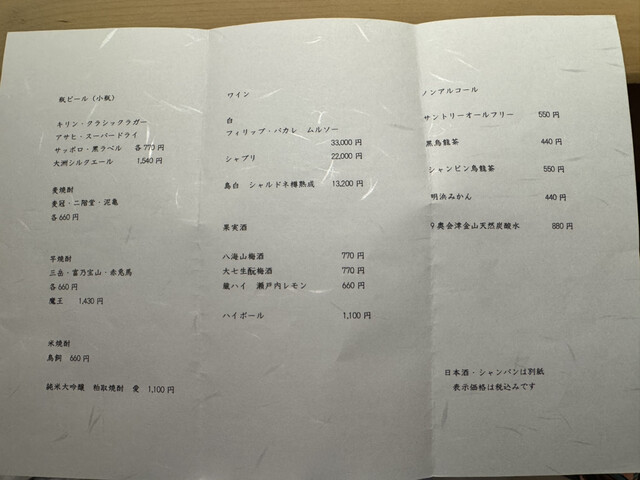 瓶ビール(小瓶)
キリン・クラシックラガー
アサヒ・スーパードライ
サッポロ・黒ラベル 各770円
大洲シルクエール 1,540円
麦焼酎
麦冠・二階堂・泥亀
各660円
芋焼酎
三岳・富乃宝山・赤兎馬
各660円
魔王 1,430円
米焼酎
鳥飼 660円
純米大吟醸 粕取焼酎 愛 1,100円
ワイン
白
フィリップ・パカレ ムルソー
33,000円
シャブリ 22,000円
島白 シャルドネ樽熟成 13,200円
果実酒
八海山梅酒 770円
大七生酛梅酒 770円
蔵ハイ 瀬戸内レモン 660円
ハイボール 1,100円
ノンアルコール
サントリーオールフリー 550円
黒烏龍茶 440円
ジャンピン烏龍茶 550円
明浜みかん 440円
奥会津金山天然炭酸水 880円
日本酒・シャンパンは別紙
表示価格は税込みです